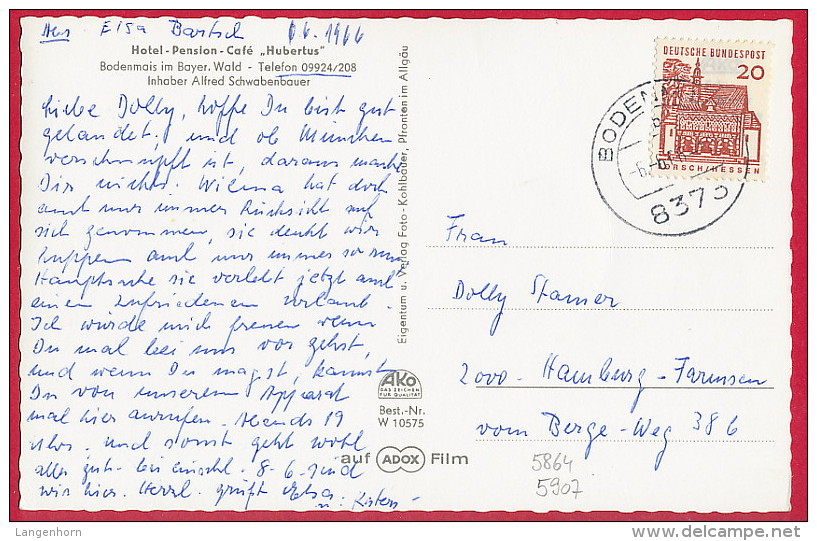 Elsa Bartsch 1966
Hotel-Pension-Café „Hubertus"
Bodenmais im Bayer. Wald - Telefon 09924/208
Inhaber Alfred Schwabenbauer
Liebe Dolly, hoffe Du bist gut
gelandet, und ob München
verschnupft ist, daraus mach
Dir nichts. Wilma hat doch
auch nur immer Rücksicht auf
sich genommen, sie denkt wir
auch nur immer so
Hauptsache sie verlebt jetzt auch
einen zufriedenen Urlaub.
Ich würde mich freuen wenn
Du mal bei uns vor gehst,
und wenn Du magst, kannst
Du von unserem Apparat
mal hier anrufen. Abends 19
Uhr. und sonst geht wohl
alles gut. bis einschl. 8-6 sind
wir hier. Herzl. grüßt Elsa
Eigentum u. Verlag Foto-Kohlbauer, Pfronten im Allgäu
AKO
DAS ZEICHEN
FÜR QUALITÄT
Best.-Nr.
W 10575
auf ADOX Film
DEUTSCHE BUNDESPOST
20
LORSCH/HESSEN
BODENMAIS
8373
Frau
Dolly Stamer
2000 - Hamburg - Farmsen
vom Berge-Weg 38 b
5864
5907
Langenhorn
delcampe.net